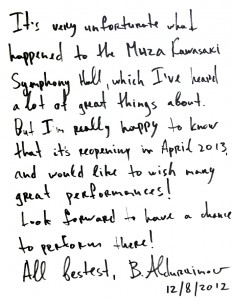 It's very unfortunate what
happened to the Muza Kawasaki
Symphony Hall, which I've heard
a lot of great things about.
But I'm really happy to know
that it's reopening in April 2013,
and would like to wish many
great performances!
Look forward to have a chance
to perform there!
All bestest, B.
12/8/2012